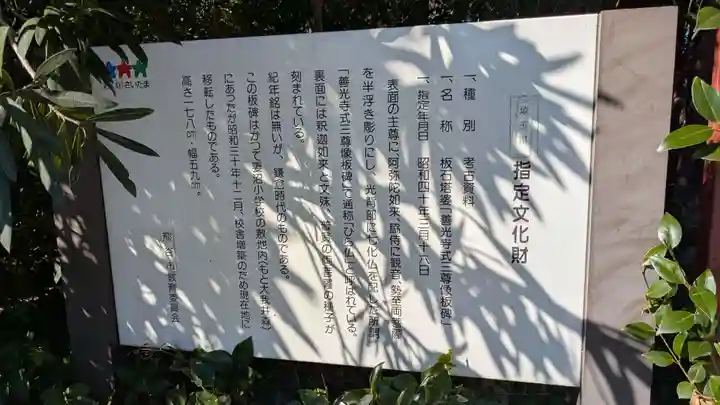 指定文化財
一、種 別 考古資料
一、名 称 板石塔婆「善光寺式三尊像板碑」
一、指定年月日 昭和四十年三月十六日
表面の主尊に阿弥陀如来、脇侍に観音、勢至両菩薩
を半浮き彫りにし、光背部に七化仏を配した所謂
「善光寺式三尊像板碑」で通称「ひら仏」と呼ばれている。
裏面には釈迦如来と文殊、普賢の両菩薩の種子が
刻まれている。
紀年銘は無いが、鎌倉時代のものである。
この板碑はかつて妻沼小学校の敷地内(もと大我井森)
にあったが昭和三十年十二月、校舎増築のため現在地に
移転したものである。
高さ一七八㎝・幅五九㎝。
市教育委員会
さいたま